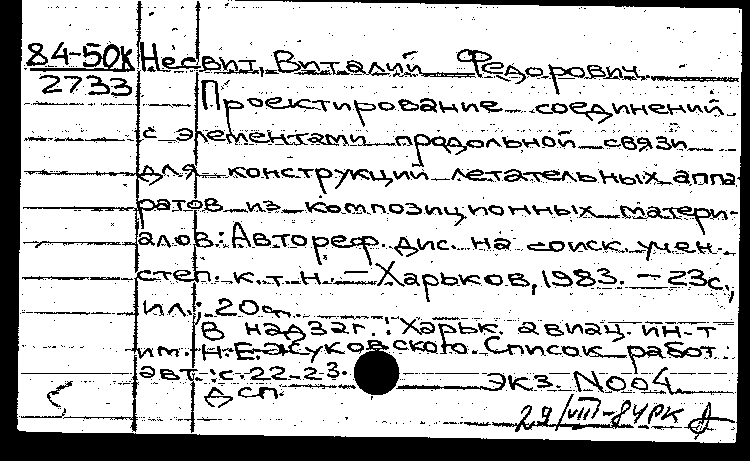 84-50К Несвит, Виталий Федорович
2733
Проектирование соединений
с элементами продольной связи
для конструкций летательных аппа-
ратов из композиционных матери-
алов: Автореф. дис. на соиск. учен.
степ. к. т. н. – Харьков, 1983. – 23с.,
ил.; 20см.
В надзаг.: Харьк. авиац. ин-т
им. Н.Е. Жуковского. Список работ
авт.: с. 22-23.
экз. №004.
Дсп.
29/VIII-84 РК